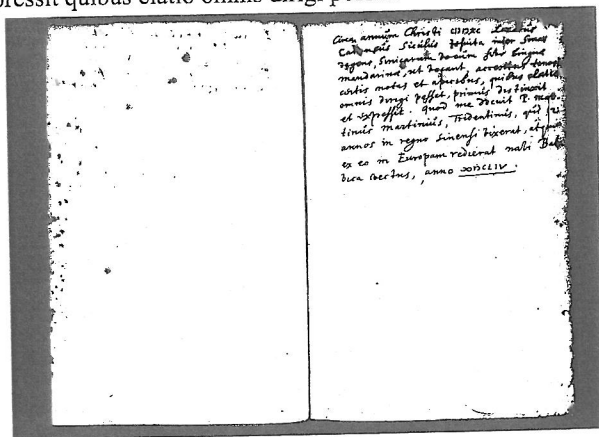 pressit quibus elatio omnis dirigi
Circa annum Christi CIƆIƆXC Lazarus
Siculus Jesuita inter Sinas
degens, Sinicarum vocum sive linguae
mandarinae, ut vocant, accentus
certis notas et apicibus, quibus elatio
omnis dirigi posset, primus distinxit
et expressit. quod me docuit P. Mar-
tinius Martinius, Tridentinus, qui
annos in regno Sinensi vixerat, atque
ex eo in Europam redierat navi Bata
vica vectus, anno